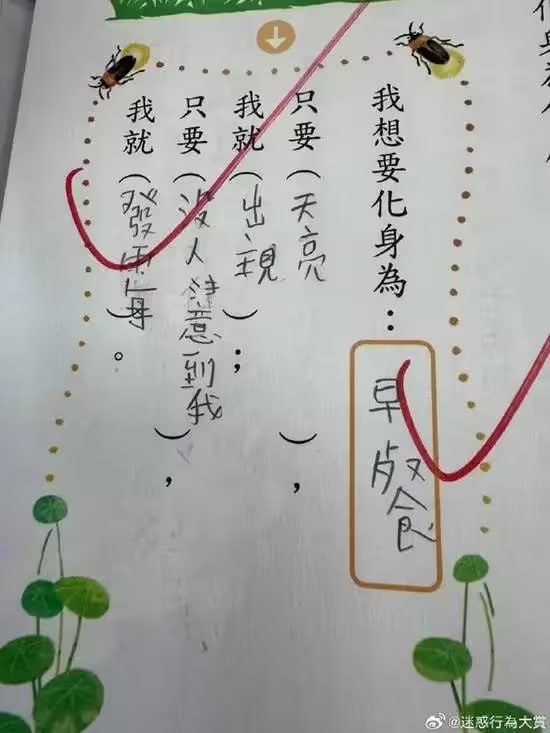 我想要化身為：早餐
只要（天亮），
我就（出現）；
只要（沒人注意到我），
我就（發霉）。
@迷惑行為大賞